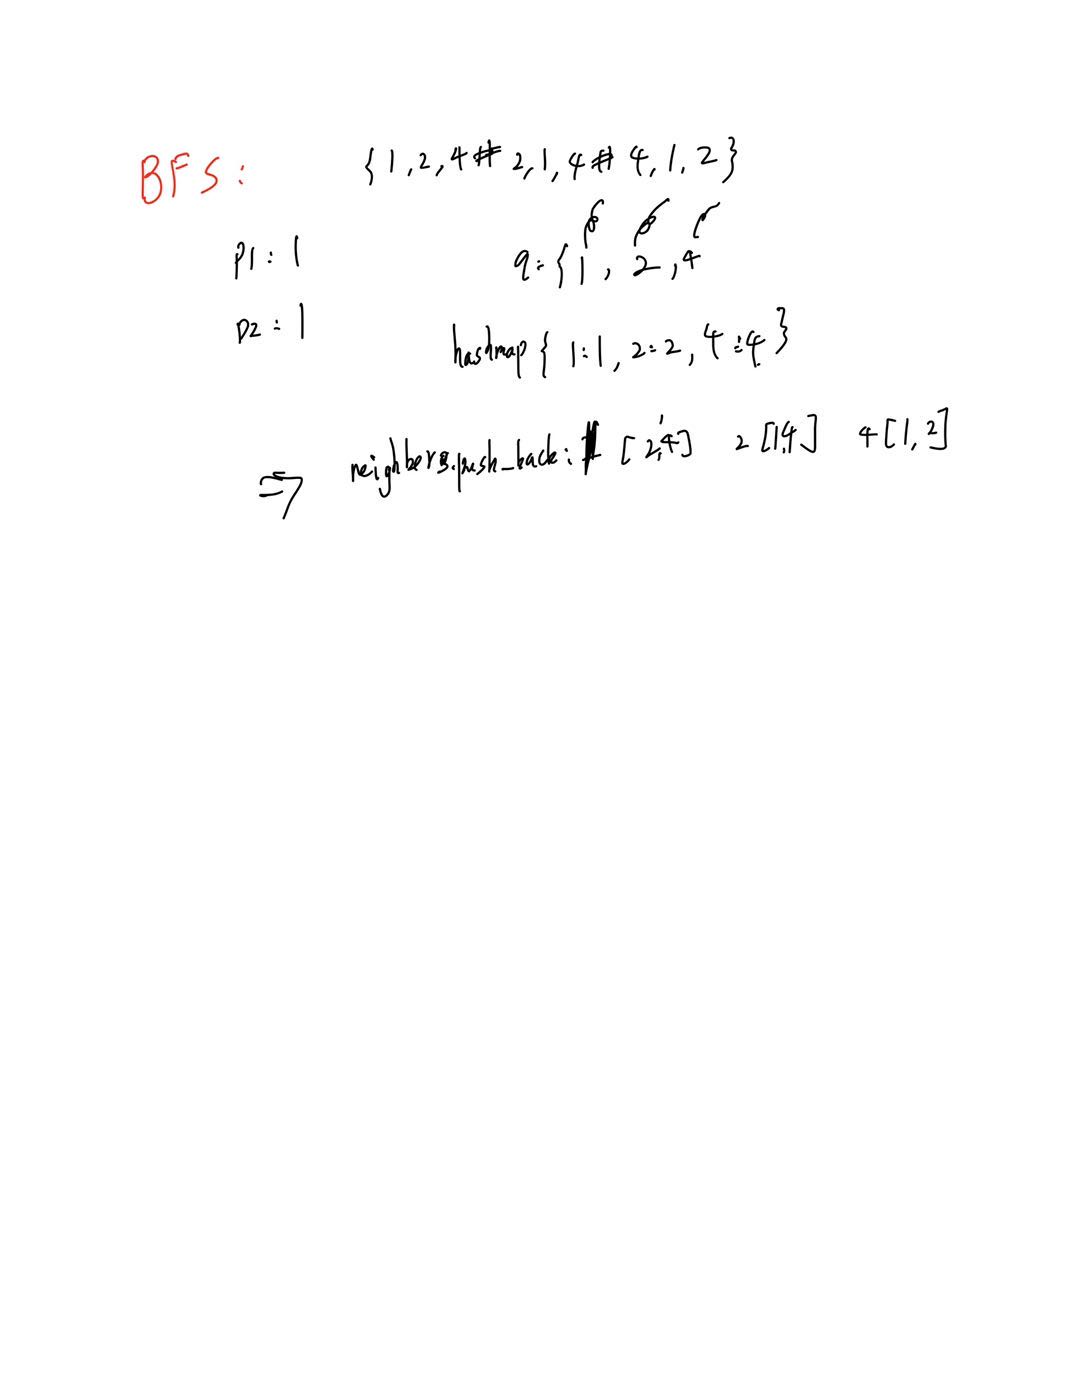 BFS: {1,2,4# 2,1,4# 4,1,2}
p1: 1
q={1, 2,4
p2: 1
hashmap { 1:1, 2:2, 4:4}
⇒ neighbers.push_back: 1 [2,4] 2 [1,4] 4 [1,2]